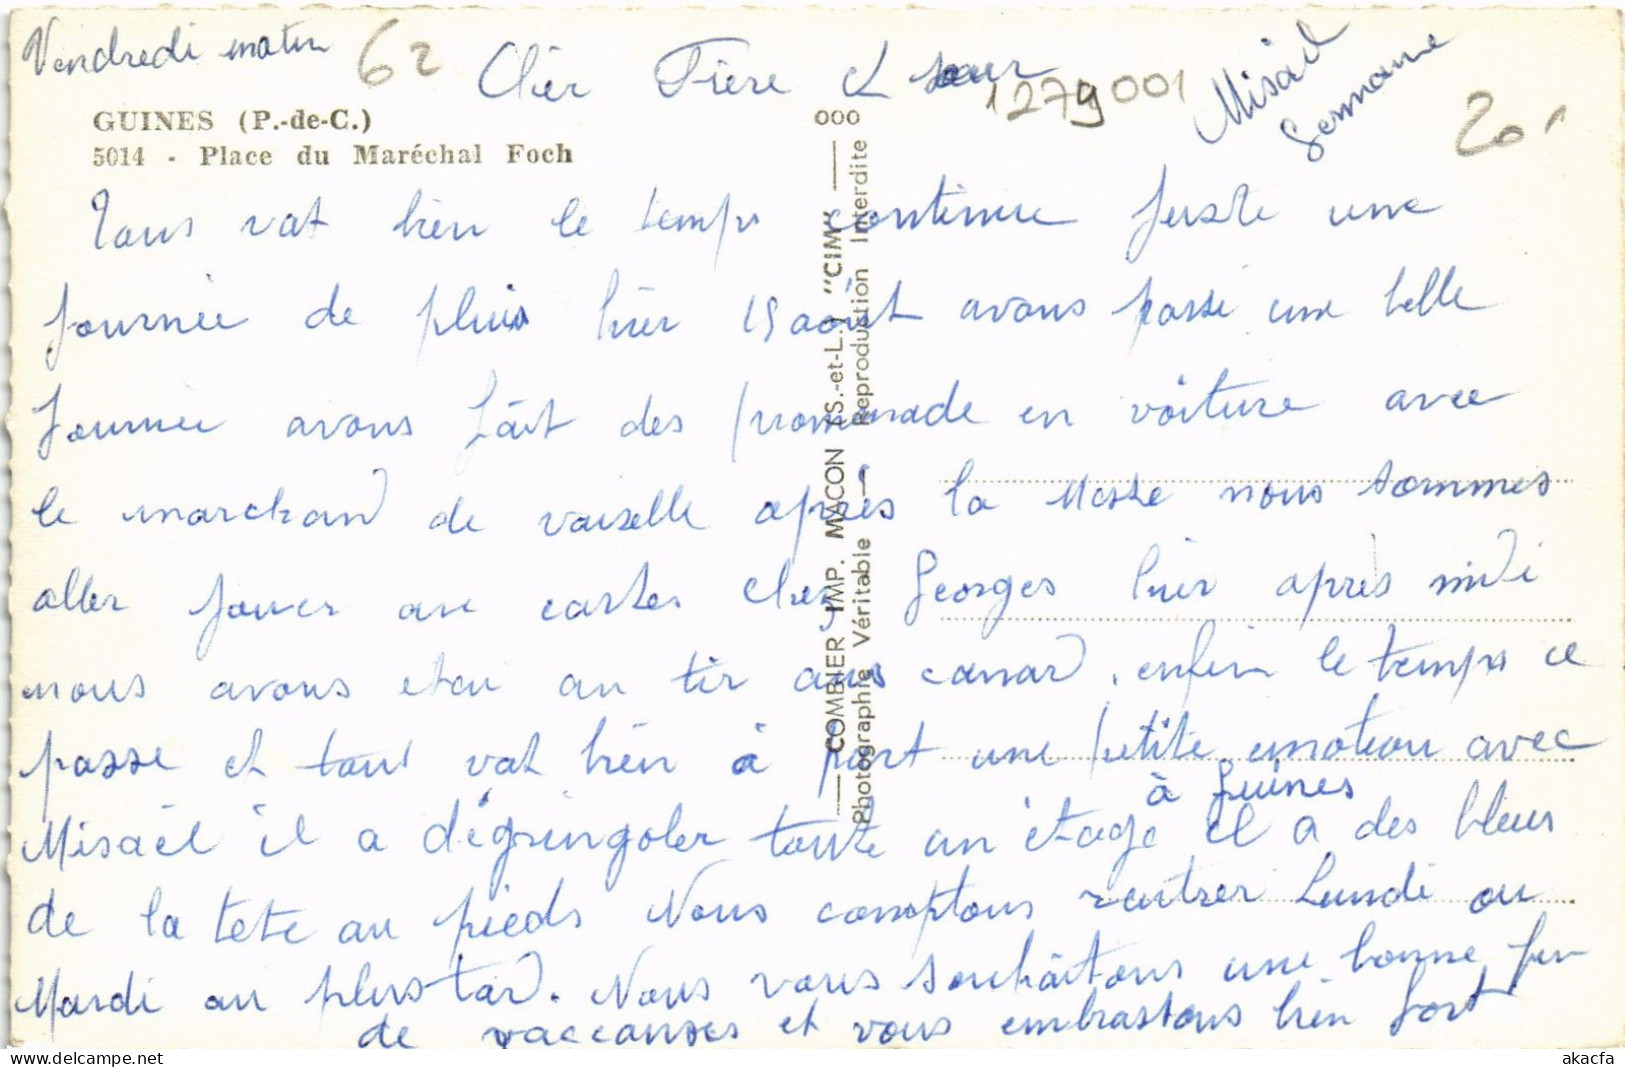 Vendredi matin
62
Chèr Frère et soeur
1279001
Misaël
Germaine
20,
GUINES (P.-de-C.)
5014 - Place du Maréchal Foch
000
Tous vat bien le temps continue juste une
journée de pluis hier 15 août avons passé une belle
journée avons fâit des promenade en voiture avec
le marchand de vaiselle après la Messe nous sommes
aller jouer au cartes chez Georges hier après midi
nous avons etai au tir aus canard. enfin le temps ce
passe et tout vat bién à part une petite emotion avec
à Guines
Misaël il a dégringoler toute un étage il a des bleus
de la tete au pieds Nous comptons rentrer Lundi ou
Mardi au plus tard. Nous vous souhâitons une bonne fin
de vaccanses et vous embrassons bien fort
COMBIER IMP. MACON (S.-et-L.) "CIM"
Photographie Véritable — Reproduction Interdite
akacfa
www.delcampe.net